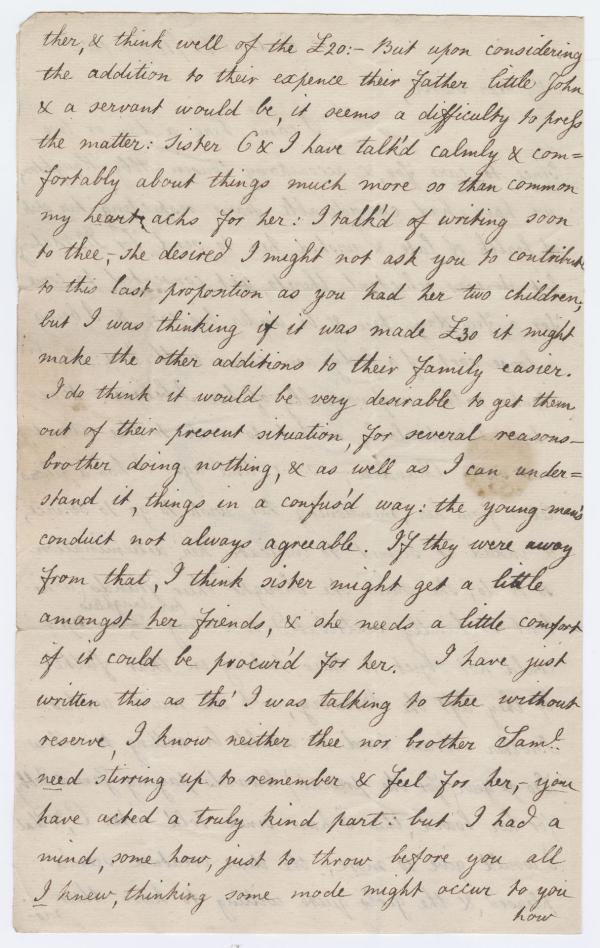 ther, & think well of the £20:- But upon considering
the addition to their expence their father little John
& a servant would be, it seems a difficulty to press
the matter: Sister G & I have talk'd calmly & com=
fortably about things much more so than common
my heart achs for her: I talk'd of writing soon
to thee,- she desired I might not ask you to contribute
to this last proposition as you had her two children,
but I was thinking if it was made £30 it might
make the other additions to their family easier.
I do think it would be very desirable to get them
out of their present situation, for several reasons-
brother doing nothing, & as well as I can under=
stand it, things in a confus'd way: the young men's
conduct not always agreeable. If they were away
from that, I think sister might get a little
amongst her friends, & she needs a little comfort
if it could be procur'd for her. I have just
written this as tho' I was talking to thee without
reserve, I know neither thee nor brother Saml.
need stirring up to remember & feel for her,- you
have acted a truly kind part: but I had a
mind, some how, just to throw before you all
I knew, thinking some mode might occur to you
how